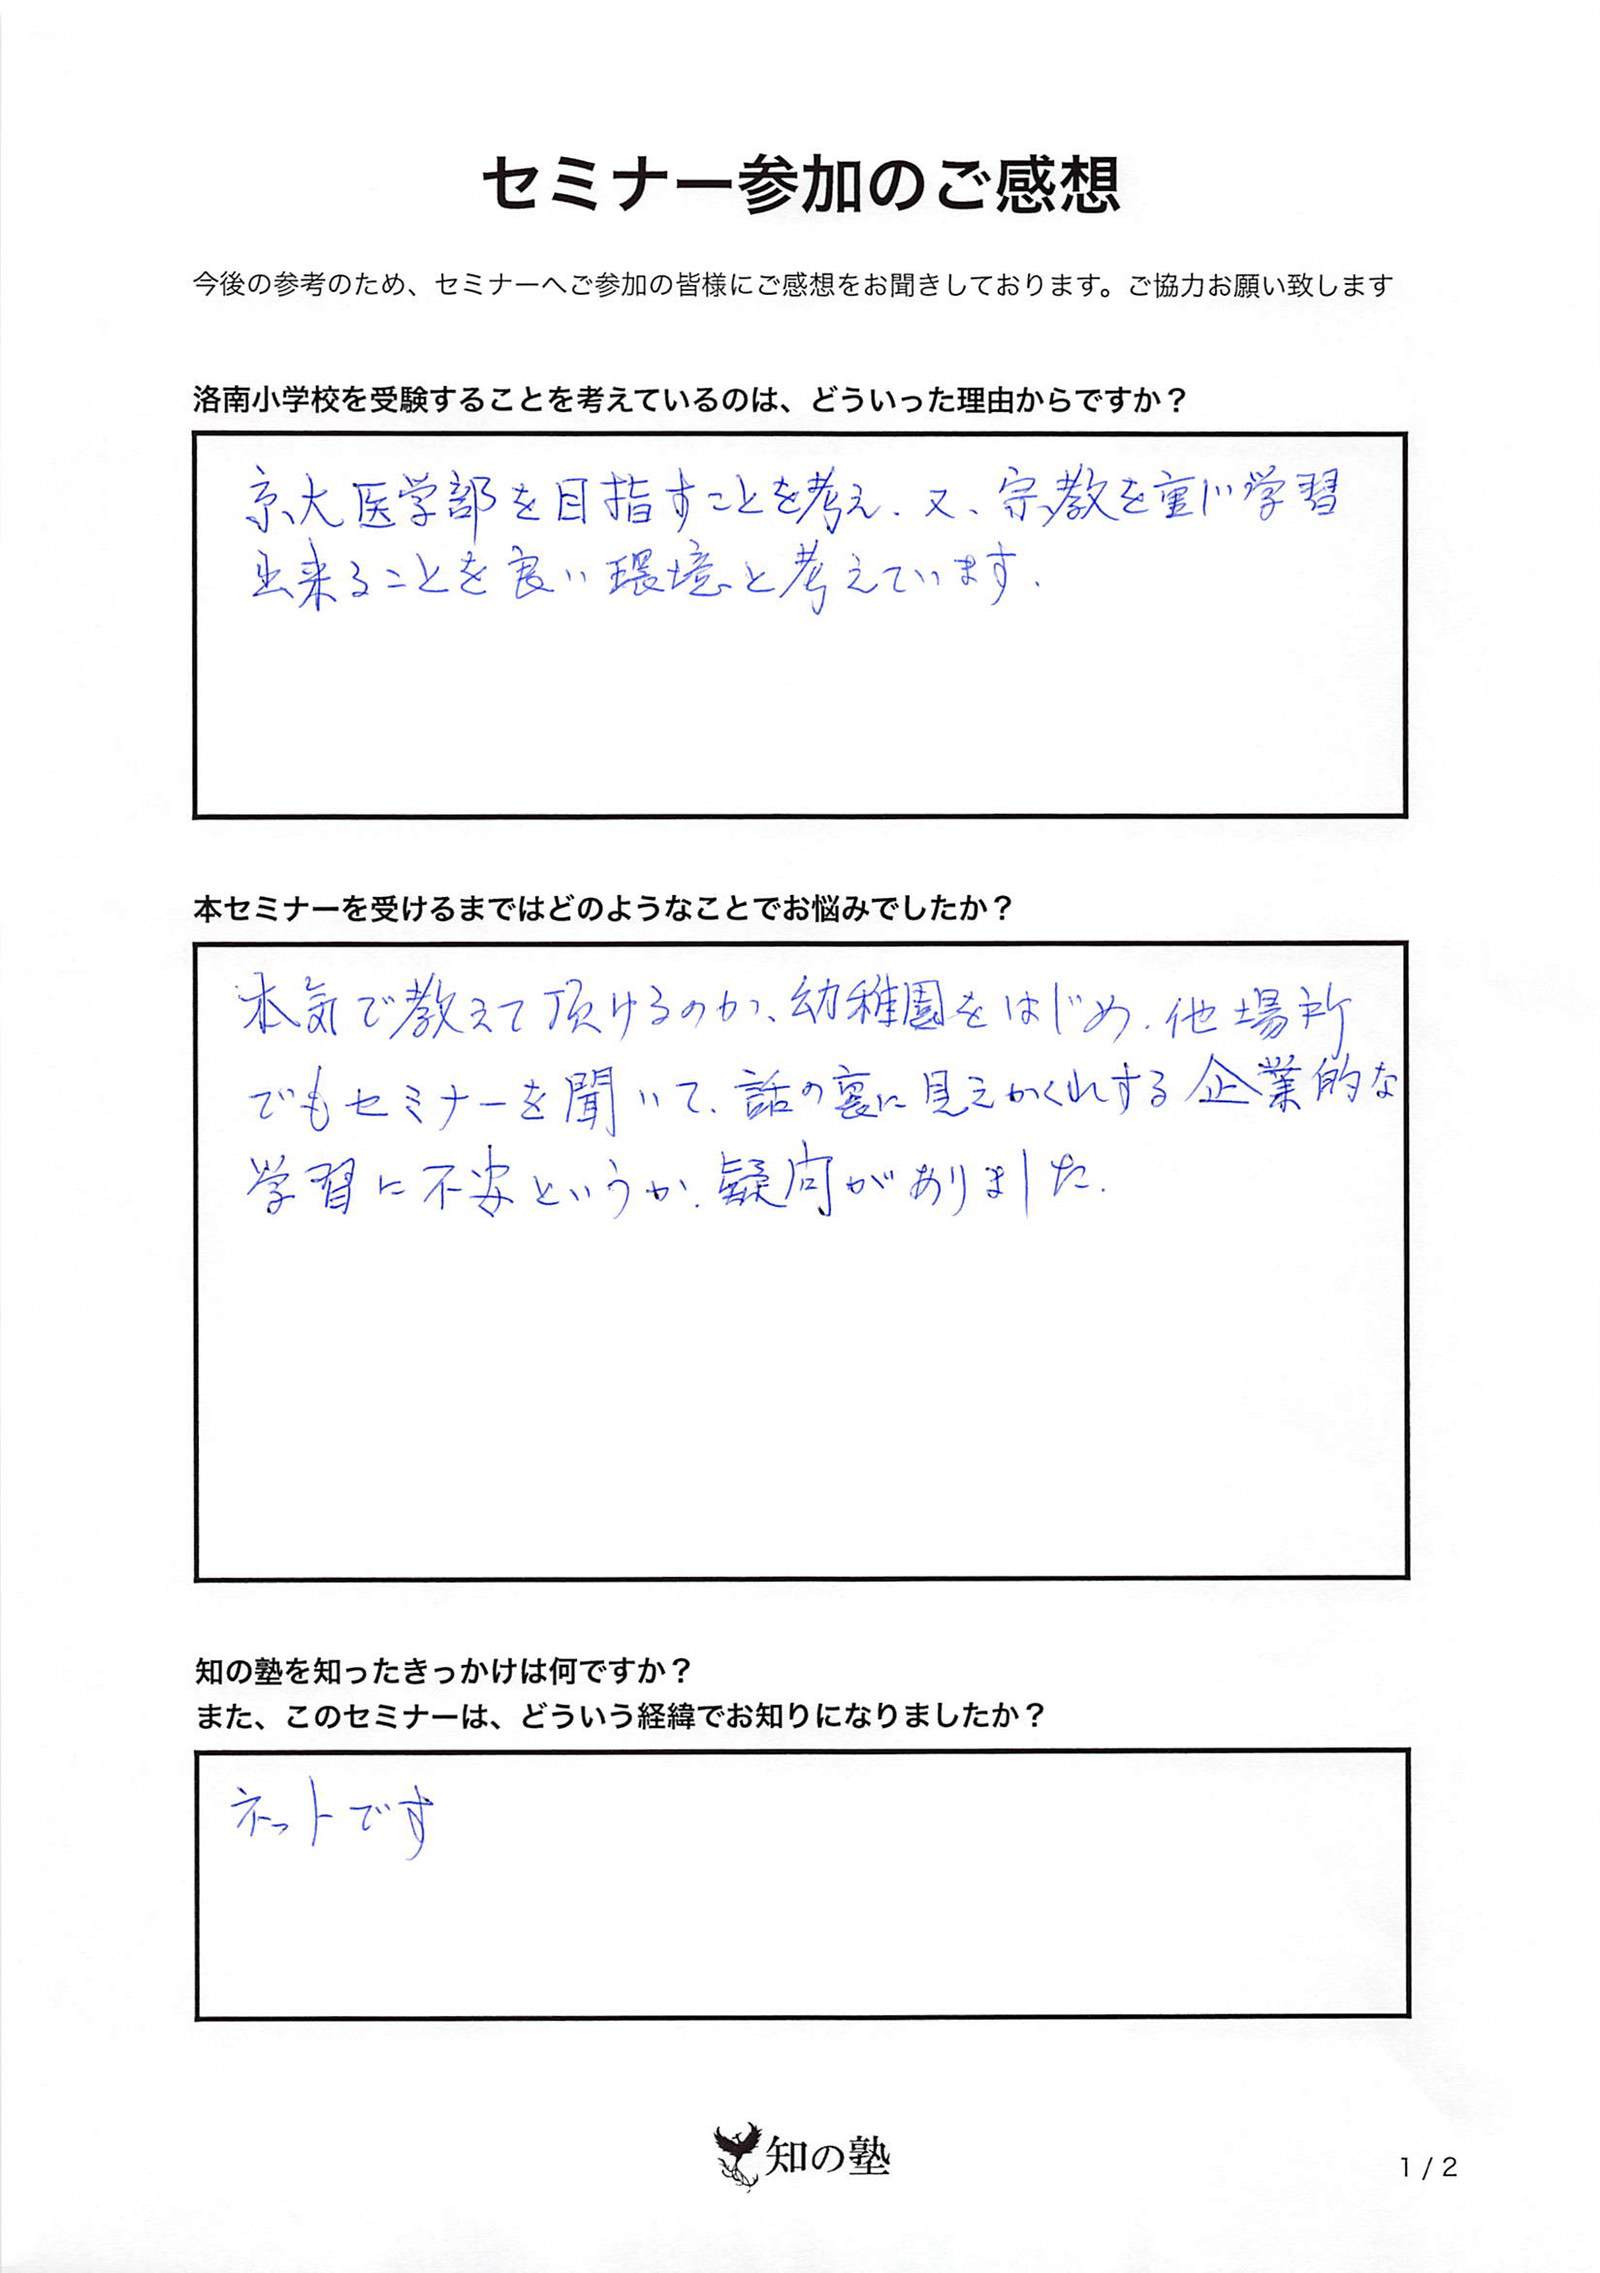 セミナー参加のご感想
今後の参考のため、セミナーへご参加の皆様にご感想をお聞きしております。ご協力お願い致します
洛南小学校を受験することを考えているのは、どういった理由からですか？
京大医学部を目指すことを考え、又、宗教を重じ学習
出来ることを良い環境と考えています.
本セミナーを受けるまではどのようなことでお悩みでしたか？
本気で教えて頂けるのか、幼稚園をはじめ、他場所
でもセミナーを聞いて、話の裏に見えかくれする企業的な
学習に不安というか、疑問がありました.
知の塾を知ったきっかけは何ですか？
また、このセミナーは、どういう経緯でお知りになりましたか？
ネットです
知の塾
1 / 2